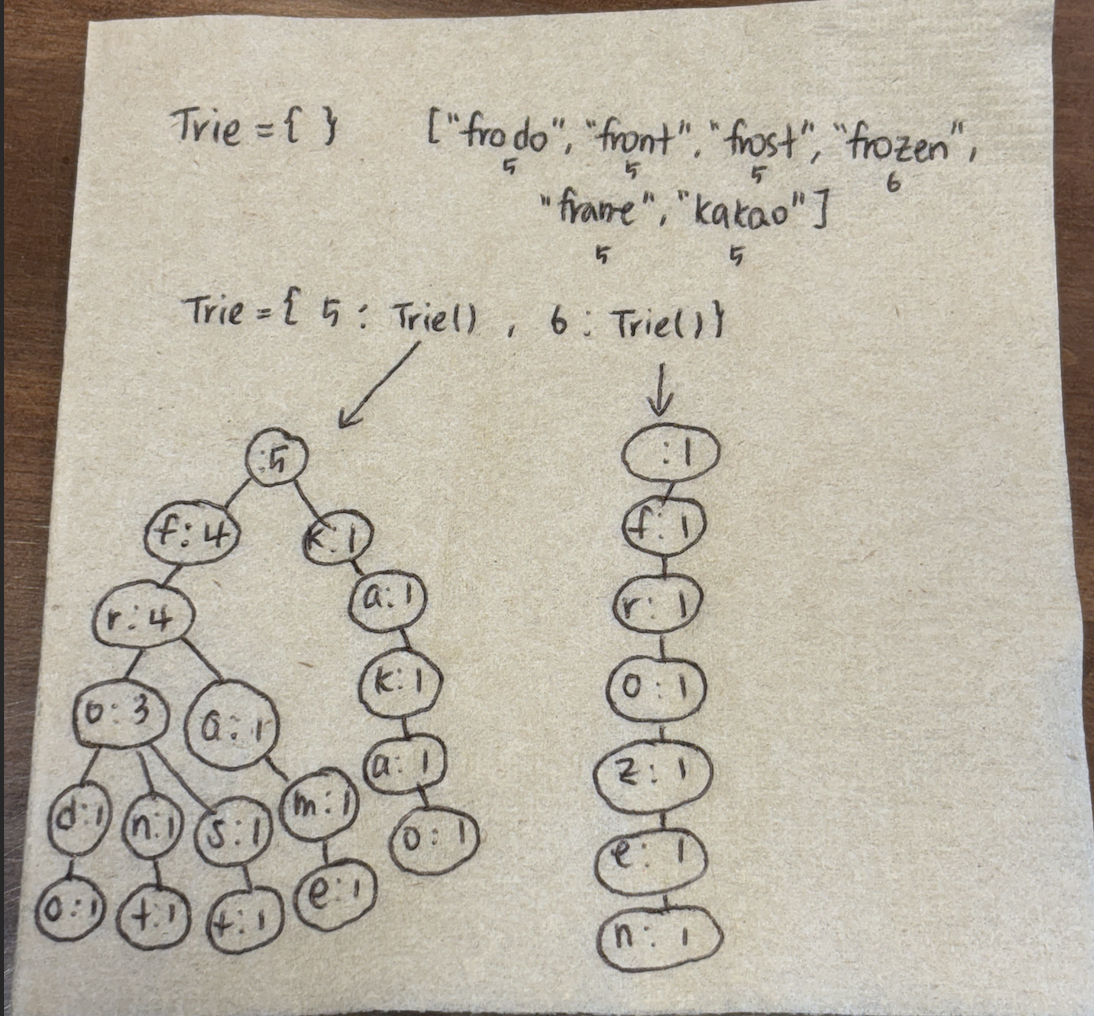 Trie = { }    ["frodo", "front", "frost", "frozen",
5 5 5 6
"frame", "kakao"]
5 5
Trie = { 5 : Trie() , 6 : Trie()}
:5 :1
f:4 k:1 f:1
r:4 a:1 r:1
o:3 a:1 k:1 o:1
d:1 n:1 s:1 m:1 a:1 z:1
o:1 t:1 t:1 e:1 o:1 e:1
n:1